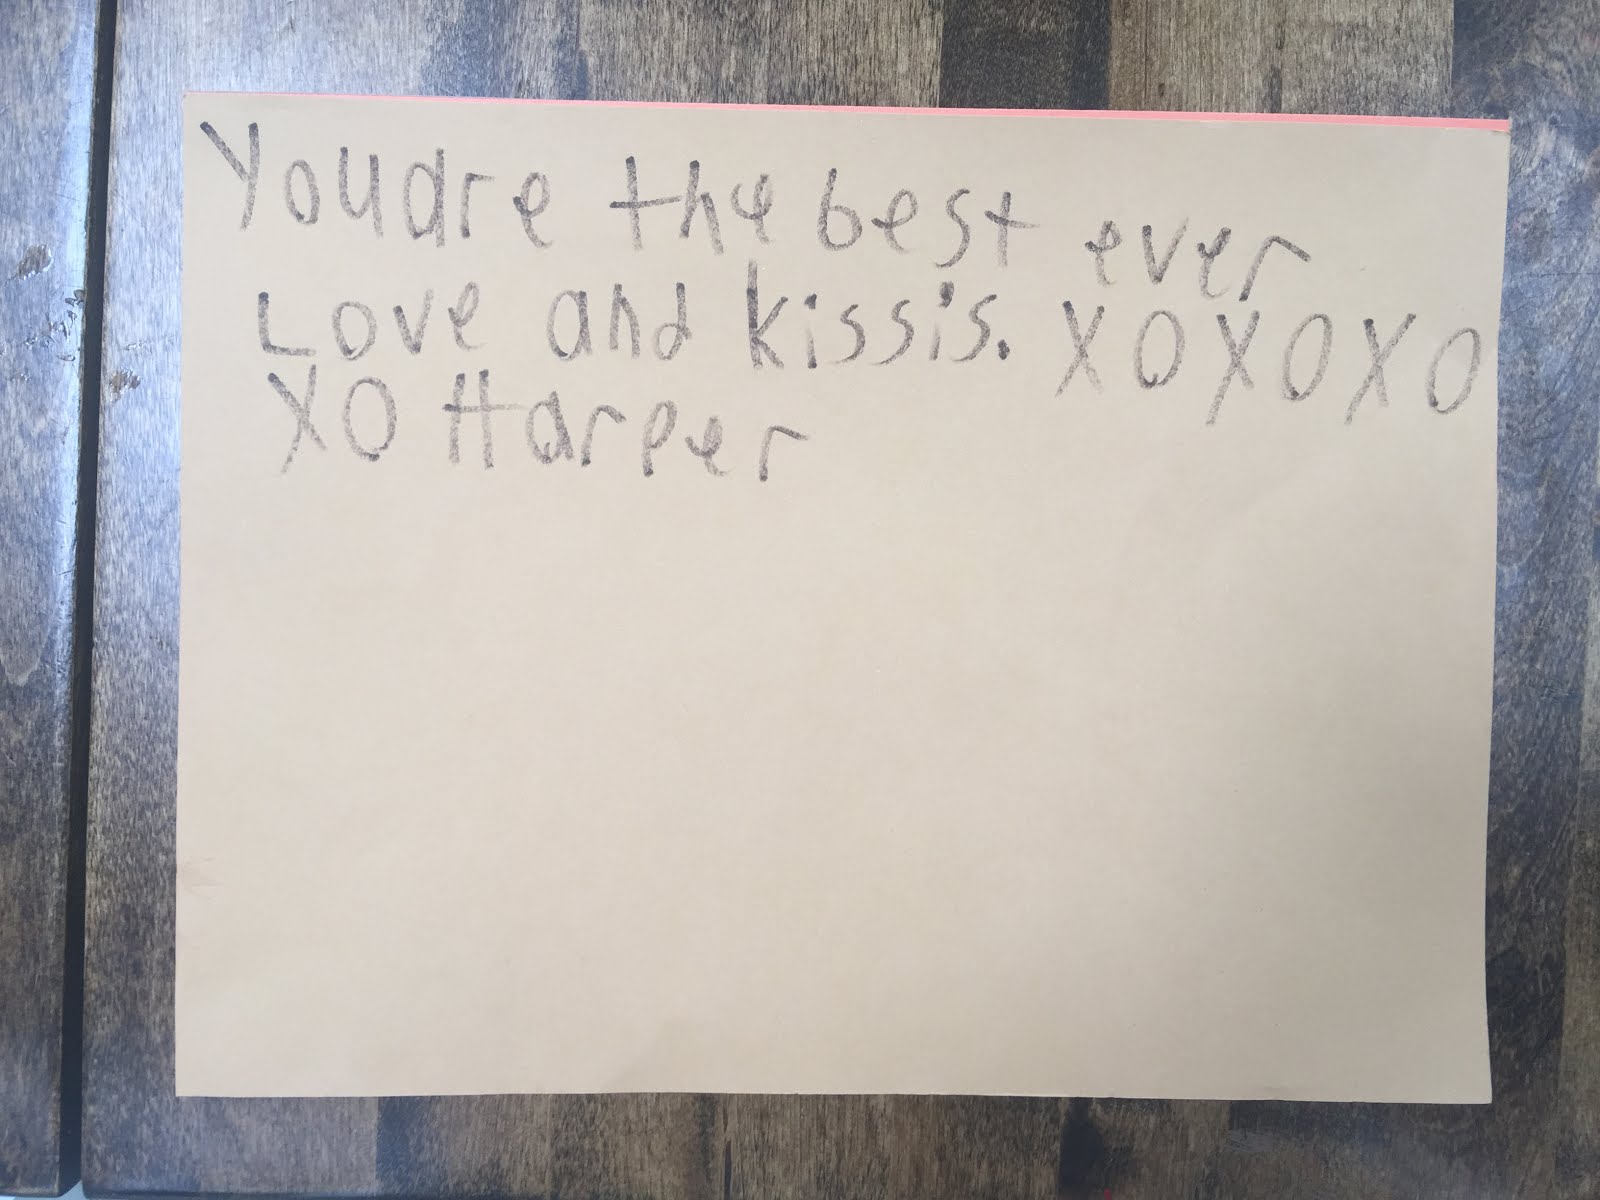 Youare the best ever
Love and kissis. XOXOXO
XO Harper